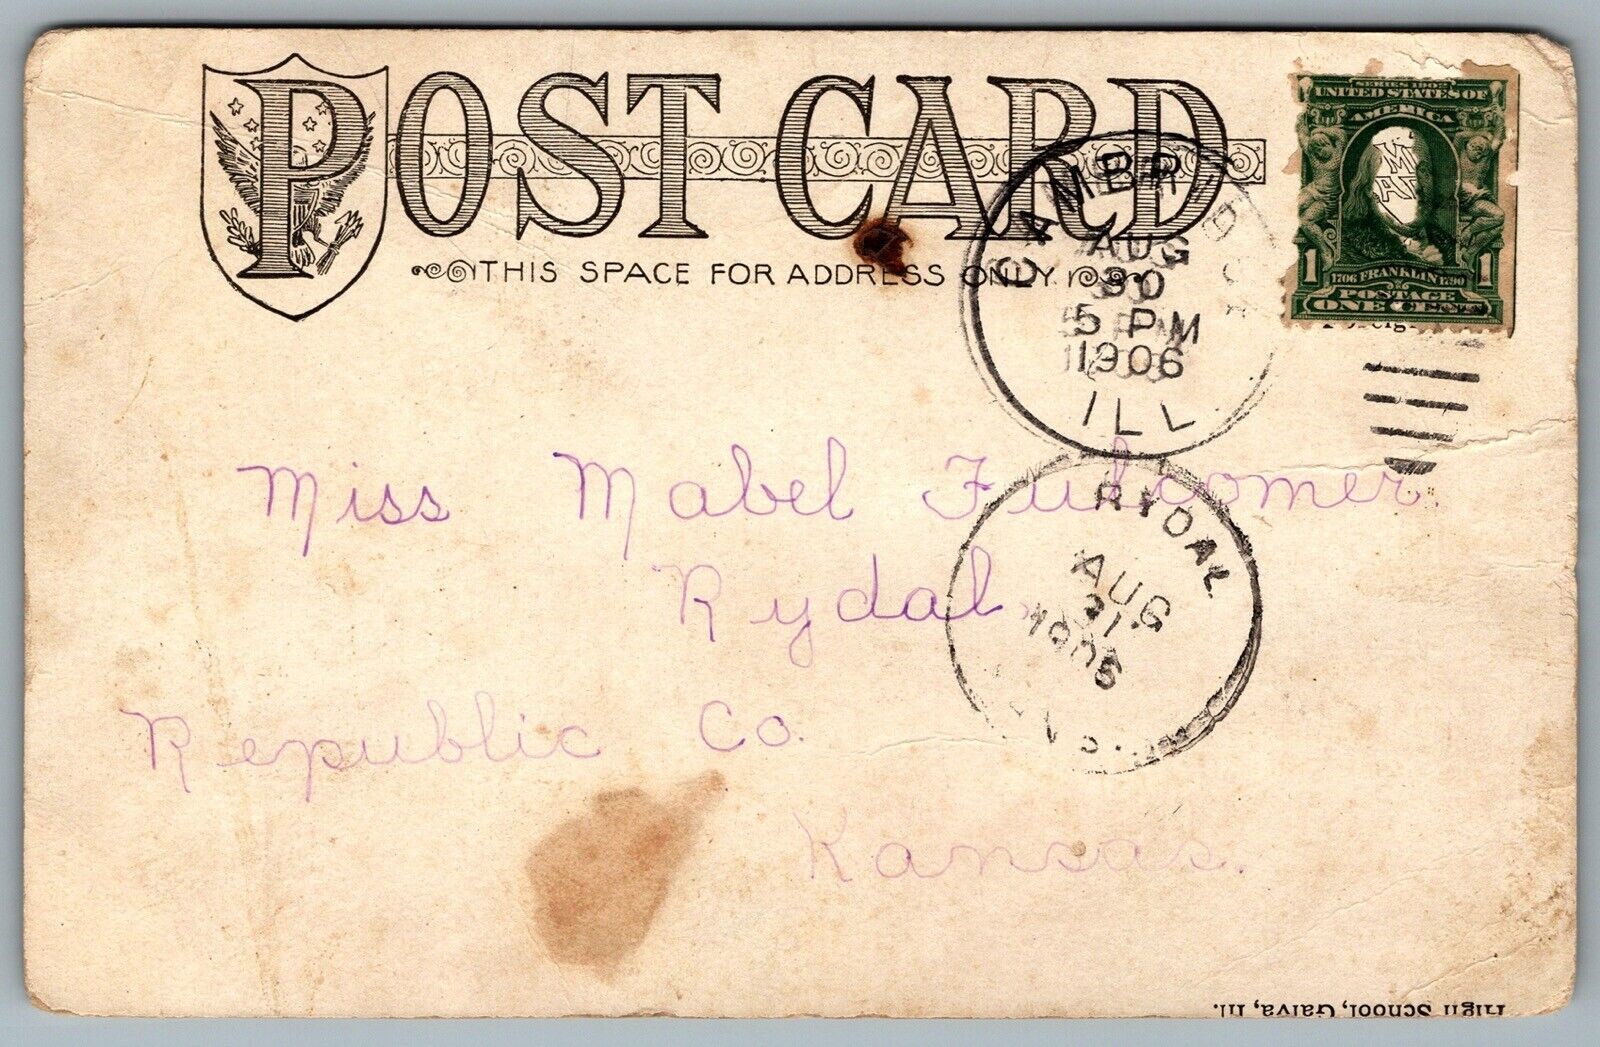 POST CARD
THIS SPACE FOR ADDRESS ONLY
SERIES 1902
UNITED STATES OF
AMERICA
1 1706 FRANKLIN 1790 1
POSTAGE
ONE CENT
CAMBRIDGE
AUG
30
5 PM
1906
ILL.
Miss Mabel Fulcomer.
RYDAL
AUG
31
1906
Rydal,
Republic Co.
Kansas.
High School, Galva, Ill.